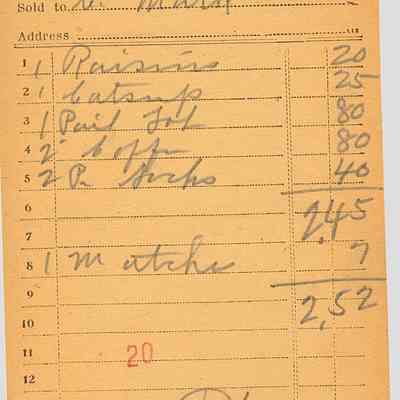 Sold to
Address
1 1 Raisins 20
2 1 Catsup 25
3 1 Pail 80
4 2 80
5 2 Pr Socks 40
6 2.45
7
8 1 Matche 7
9
10 2,52
11 20
12